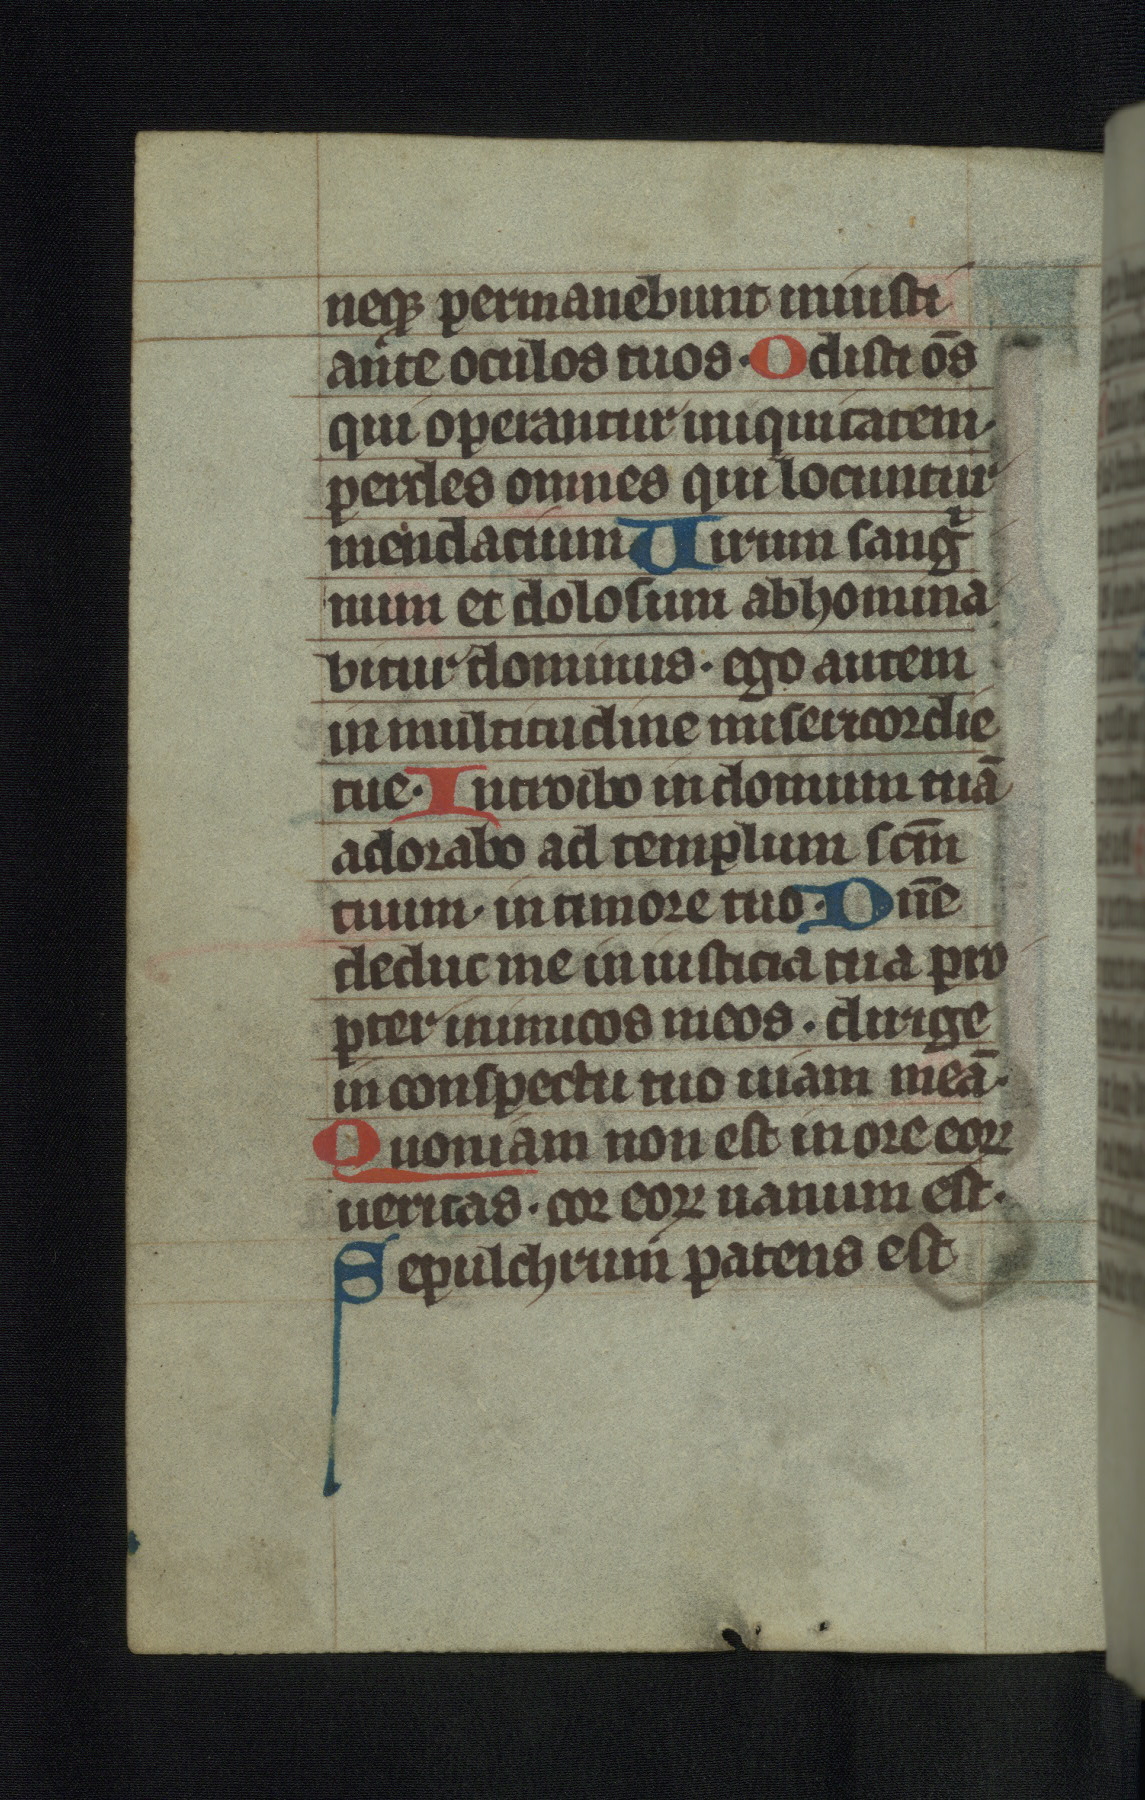 neqꝫ permanebunt iniusti
ante oculos tuos · Odisti oīs
qui operantur iniquitatem ·
perdes omnes qui locuntur
mendacium Uirum sangͥ
num et dolosum abhomina
bitur dominus · ego autem
in multitudine misericordie
tue · Introibo in domum tuā
adorabo ad templum scm̄
tuum · in timore tuo · Dn̄e
deduc me in iusticia tua pro
pter inimicos meos · dirige
in conspectu tuo uiam meā ·
Quoniam non est in ore eoꝝ
ueritas · cor eoꝝ uanum est ·
Sepulchrum patens est